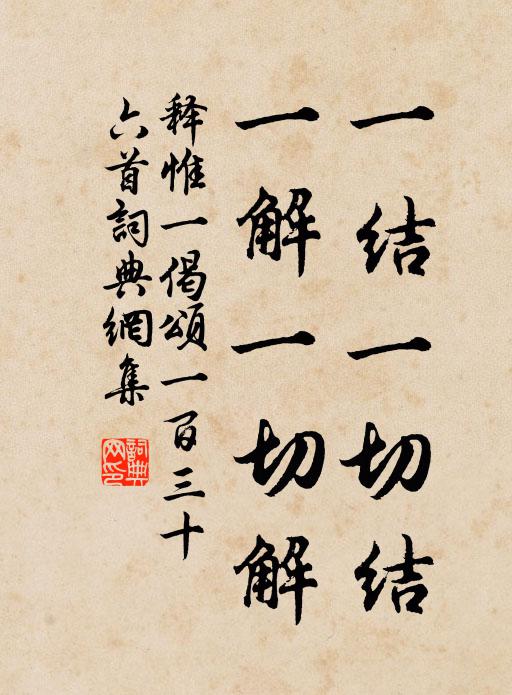 一结一切结
一解一切解
释惟一偈颂一百三十
六首詞典網集
詞典
网印